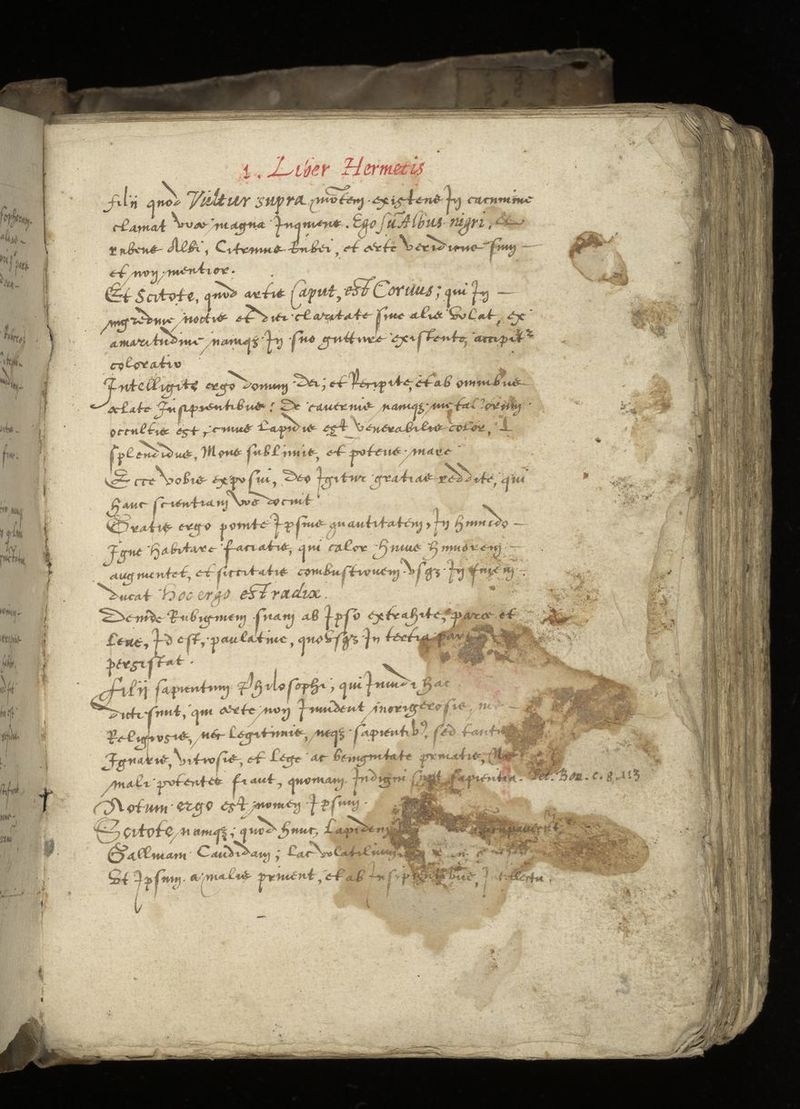 1. Liber Hermetis
filii quod Vultur supra mõtem existens In cacumine
clamat voce magna Inquiens. Ego sũ Albus nigri, et
rubens Albi, Citrinus Rubei, et certe veridicus sum —
et non mentior.
Et Scitote, quod artis Caput, est Corvus; qui In —
nigredine noctis et diei claritate sine alis Volat, ex
amaritudine namqз In suo gutture existente, accipitᵣ
coloratio
Intelligite ergo Donum Dei; et Recipite, et ab omnibus
celate Insipientibus: De cavernis namqз metallorum
occultis est, cuius Lapidis est Venerabilis color,
splendidus, Mons sublimis, et potens mare
Ecce Vobis exposui, Deo Igitur gratias reddite, qui
Hanc scientiam Vos docuit
Gratis ergo ponite Ipsius quantitatem, In Humido —
Igne Habitare faciatis, qui calor Huius Humorem —
augmentet, et siccitatis combustionem Vsqз In finem
ducat Hoc ergo est radix.
Deinde Rubiginem suam ab Ipso extrahite, parce et
Leve, Id est, paulatine, quousqз In tertia
pergistat.
Filij sapientum Philosophi, qui Inuidi Hac
Dicti sunt, qui certe non Inuident morigerosis, nec —
Religiosis, nec Legitimis, neqз sapientibꝰ, sed tantũ
Ignaris, vitiosis, et Lege ac benignitate
mali potentes fiant, quoniam Indigni sunt sapientia. c. 8. 113
Notum ergo est nomen Ipsum.
Scitote, namqз, quod Hunc, Lapidem
Gallinam Candidam; Lac volatilium
Et Ipsum a malis et ab Insipientibus,